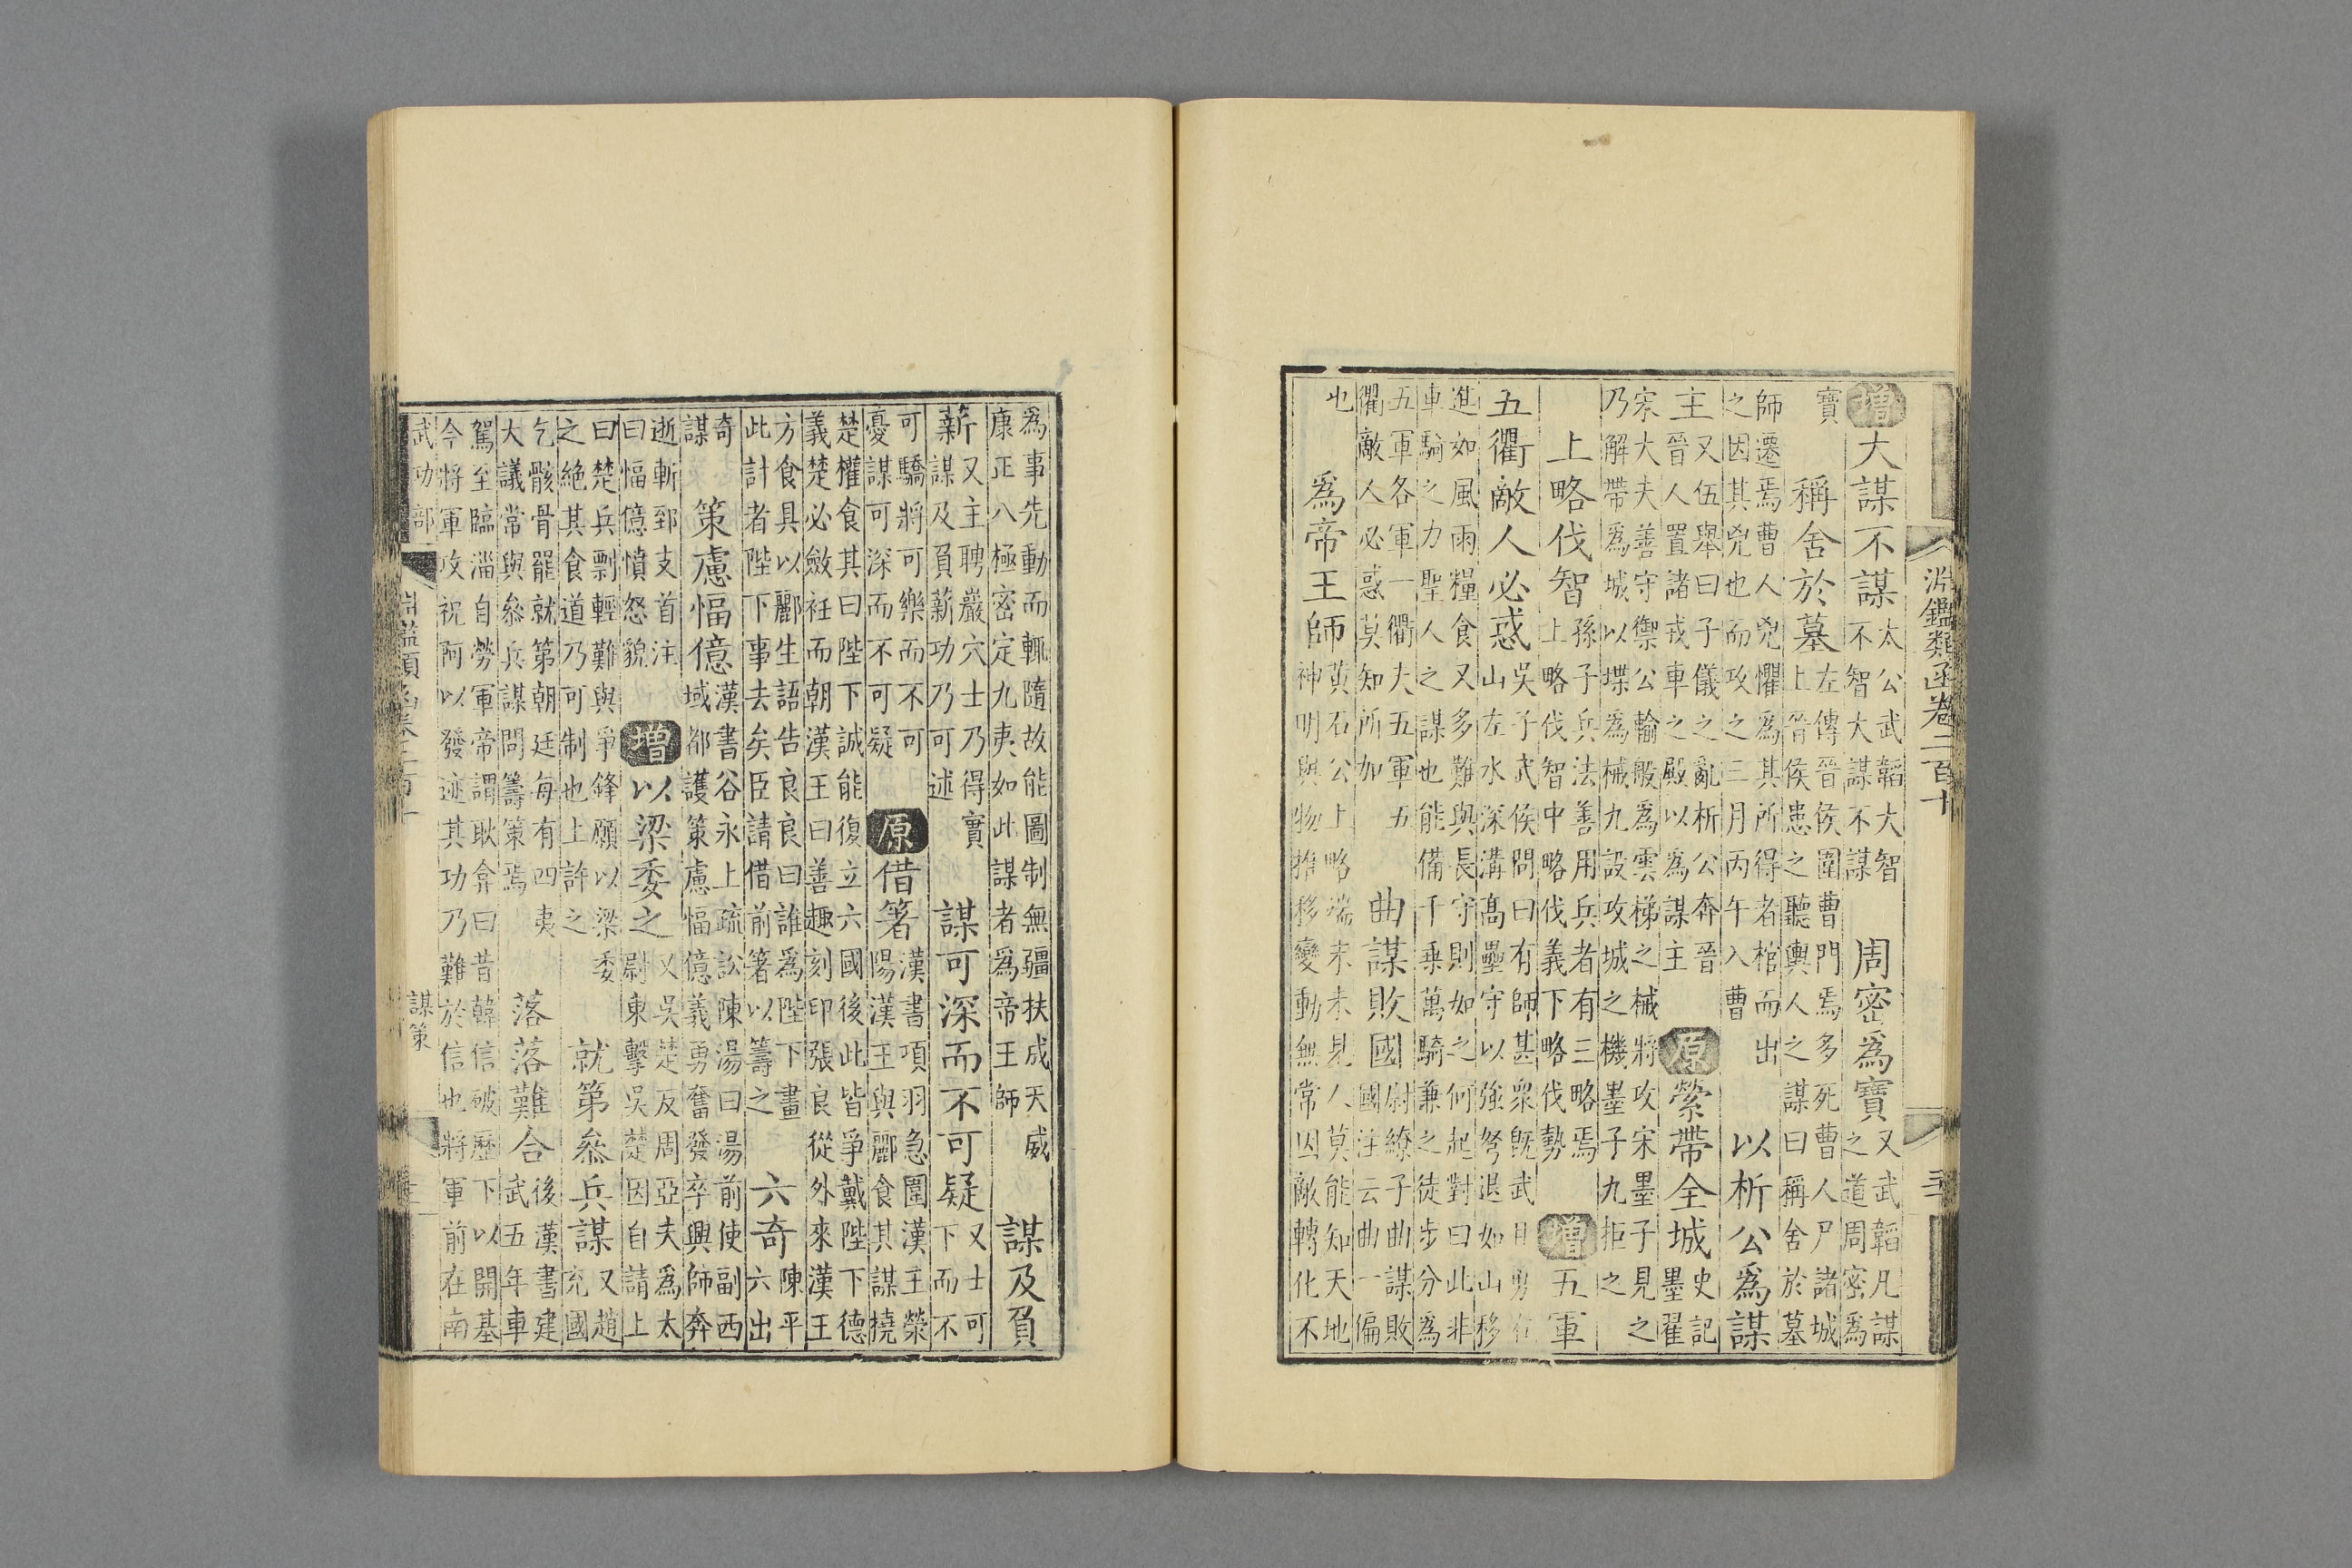 淵鑑類函卷二百十
增大謀不謀太公武韜大智
不智大謀不謀
周密爲寶又武韜凡謀
之道周密爲
寶
稱舍於墓左傳晉侯圍曹門焉多死曹人尸諸城
上晉侯患之聽輿人之謀曰稱舍於墓
師遷焉曹人兇懼爲其所得者棺而出
之因其兇也而攻之三月丙午入曹
以析公爲謀
主又伍舉曰子儀之亂析公奔晉
晉人置諸戎車之殿以爲謀主
原縈帶全城史記
墨翟
宋大夫善守禦公輸般爲雲梯之械將攻宋墨子見之
乃解帶爲城以堞爲械九設攻城之機墨子九拒之
上略伐智孫子兵法善用兵者有三略焉
上略伐智中略伐義下略伐勢
增五軍
五衢敵人必惑吳子武候問曰有師甚衆旣武且勇
山左水深溝高壘守以強弩退如山移
進如風雨糧食又多難與長守則如之何起對曰此非
車騎之力聖人之謀也能備千乗萬騎兼之徒步分爲
五軍各軍一衢夫五軍五
衢敵人必惑莫知所加
曲謀敗國尉繚子曲謀敗
國注云曲一偏
也
爲帝王師黃石公上略端末未見人莫能知天地
神明與物推移變動無常因敵轉化不
爲事先動而輒隨故能圖制無疆扶成天威
康正八極密定九夷如此謀者爲帝王師
謀及負
薪又主聘巖穴士乃得實
謀及負薪功乃可述
謀可深而不可疑又士可
下而不
可驕將可樂而不可
憂謀可深而不可疑
原借箸漢書項羽急圍漢王滎
陽漢王與酈食其謀撓
楚權食其曰陛下誠能復立六國後此皆爭戴陛下德
義楚必斂衽而朝漢王曰善趣刻印張良從外來漢王
方食具以酈生語告良良曰誰爲陛下畫
此計者陛下事去矣臣請借前箸以籌之
六奇陳平
六出
奇
謀
策慮愊億漢書谷永上疏訟陳湯曰湯前使副西
域都護策慮愊億義勇奮發卒興師奔
逝斬郅支首注
曰愊億憤怒貌
增以梁委之又吳楚反周亞夫爲太
尉東擊吳楚因自請上
曰楚兵剽輕難與爭鋒願以梁委
之絶其食道乃可制也上許之
就第叅兵謀又趙
充國
乞骸骨罷就第朝廷每有四夷
大議常與叅兵謀問籌策焉
落落難合後漢書建
武五年車
駕至臨淄自勞軍帝謂耿弇曰昔韓信破歷下以開基
今將軍攻祝阿以發迹其功乃難於信也將軍前在南
武功部
謀策